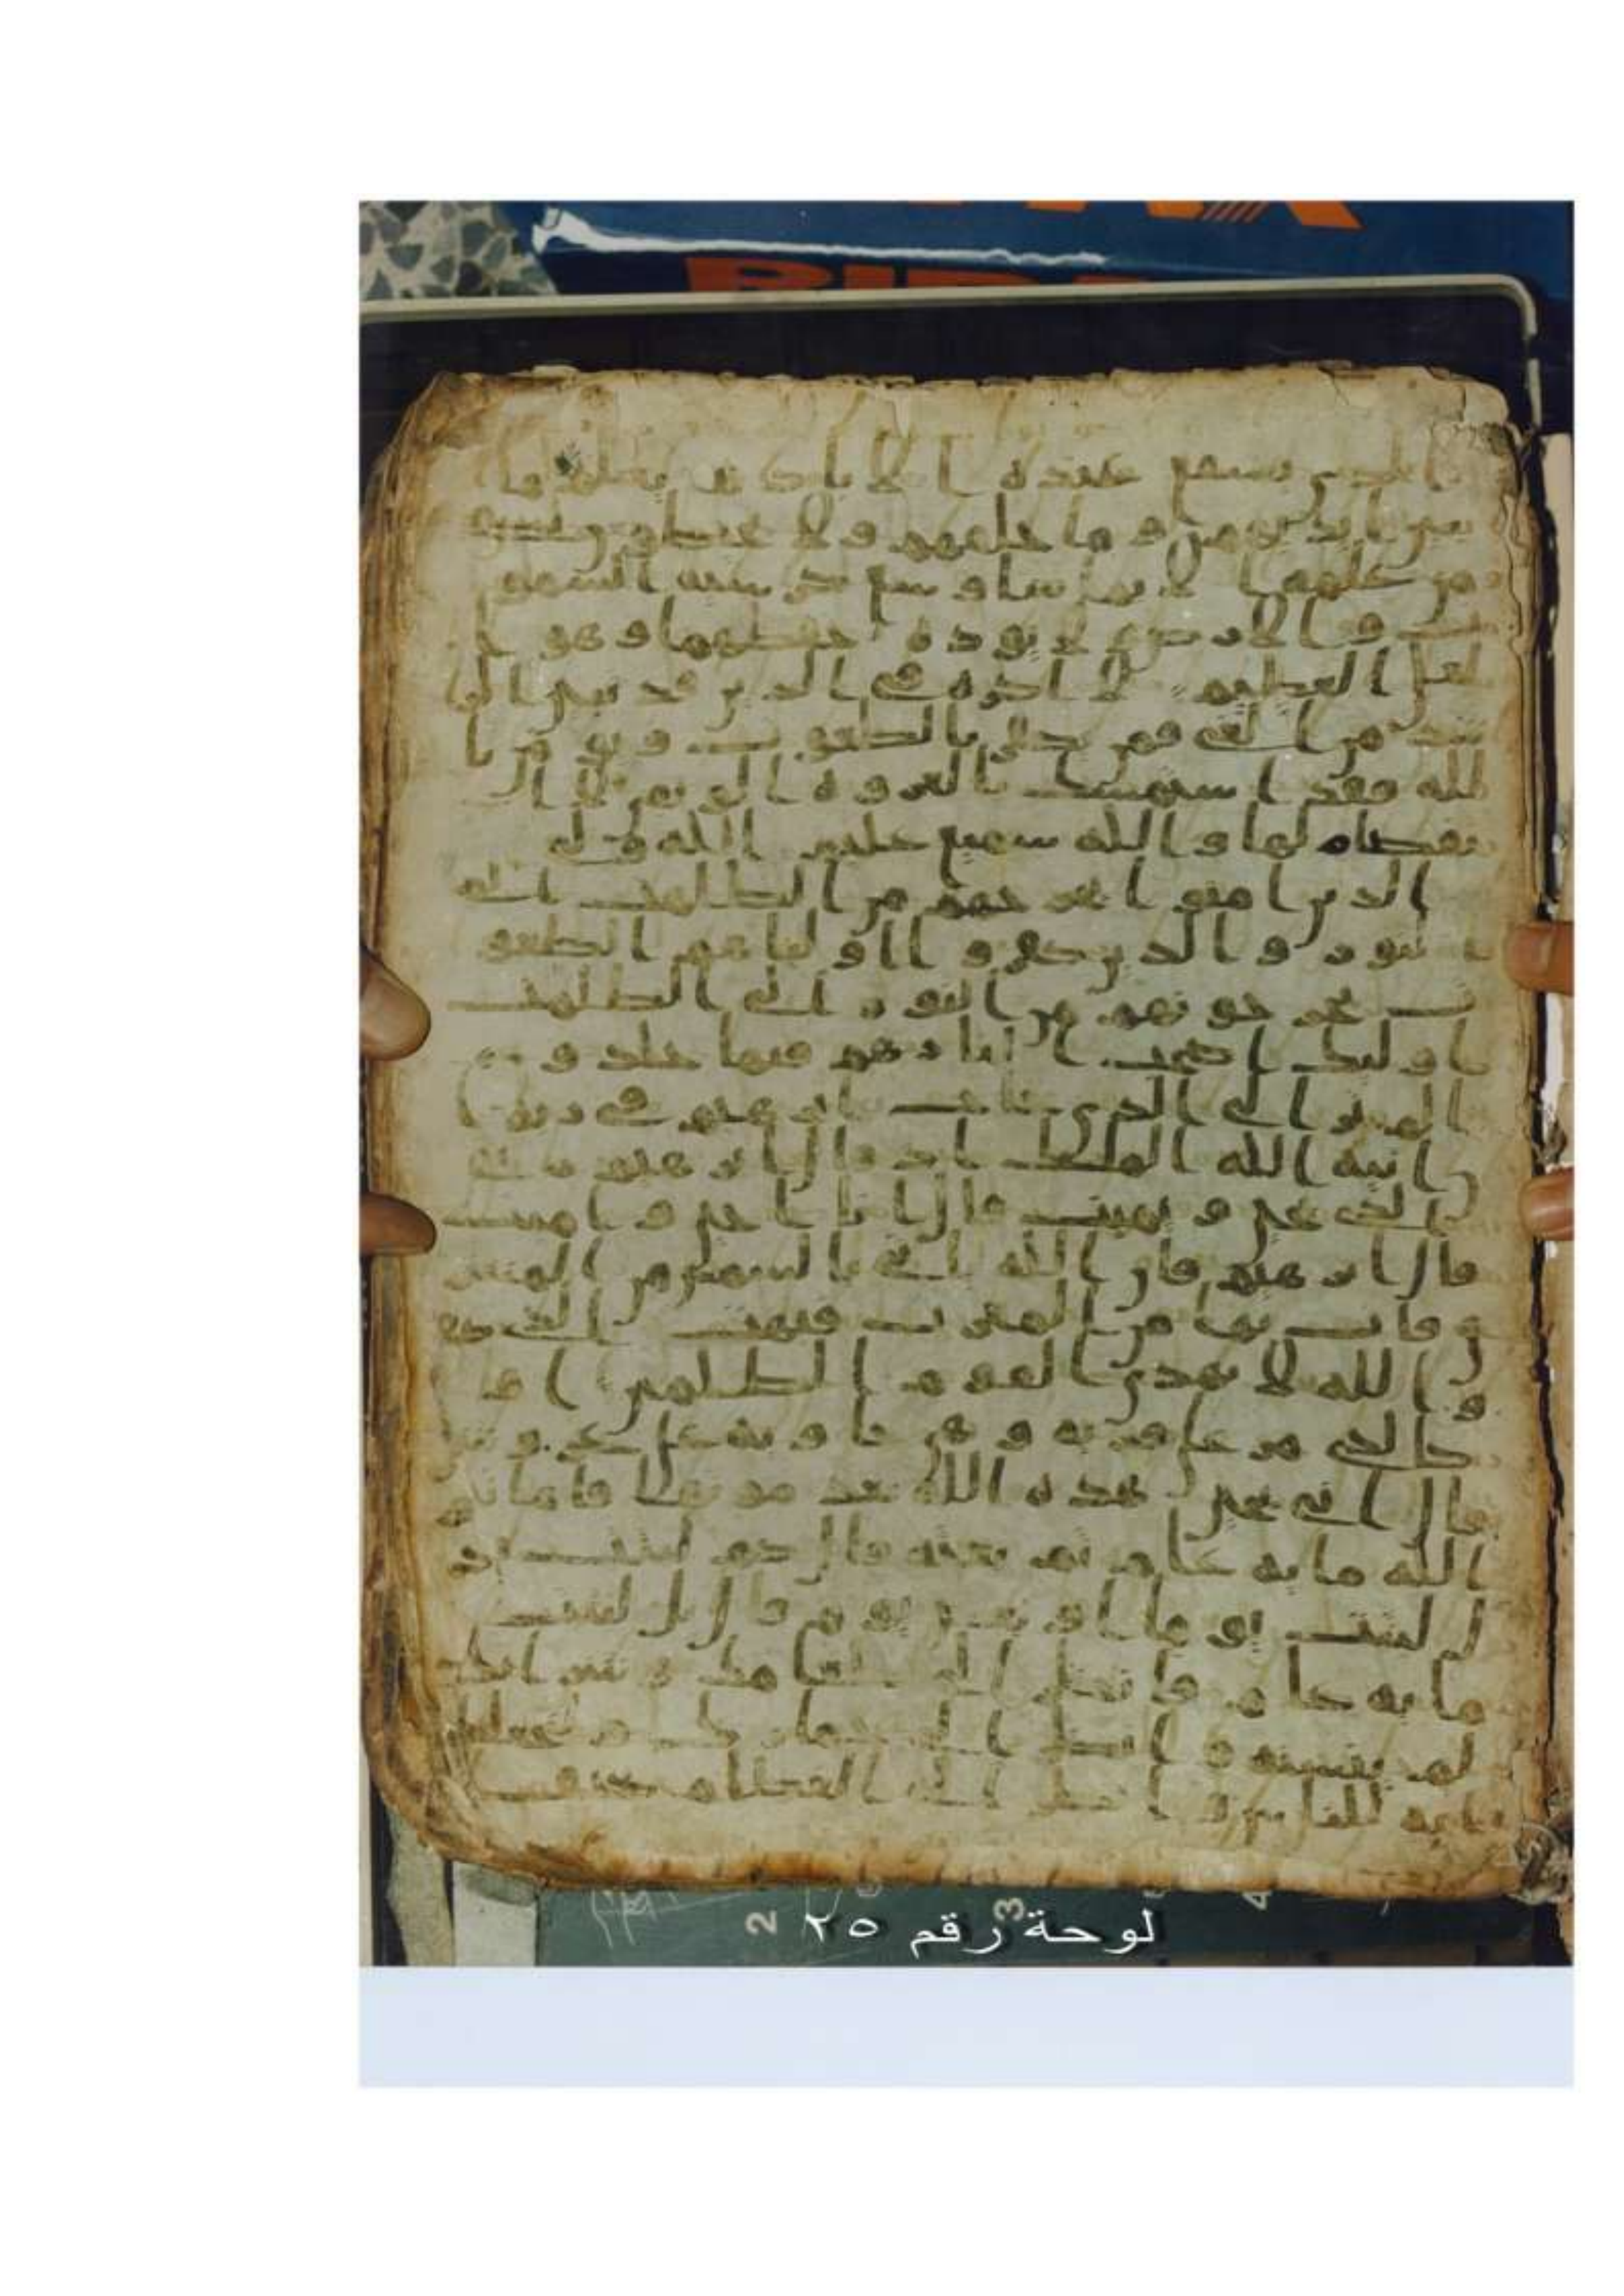 ا لدى يسفع عنده ا لا با دنه يعلم ما
بين ا يد يهم و ما خلفهم و لا يحيطو ن بشى
من علمه ا لا بما سا و سع كر سيه ا لسمو
ت و ا لا ر ض و لا يو ده حفظهما و هو ا
لعلى ا لعظيم لا ا كر ه فى ا لد ين قد تبين ا لر
شد من ا لغى فمن يكفر با لطغو ت و يو من با
لله فقد ا ستمسك با لعر و ه ا لو ثقى لا ا
نفصام لها و ا لله سميع عليم ا لله و لى
ا لد ين ا منو ا يخر جهم من ا لظلمت ا لى
ا لنو ر و ا لد ين كفر و ا ا و ليا هم ا لطغو
ت يخر جو نهم من ا لنو ر ا لى ا لظلمت
ا و ليك ا صحب ا لنا ر هم فيها خلد و ن
ا لم تر ا لى ا لدى حا ج ا بر هيم فى ر به ا
ن ا تيه ا لله ا لملك ا د قا ل ا بر هيم ر بى
ا لدى يحى و يميت قا ل ا نا ا حى و ا ميت
قا ل ا بر هيم فا ن ا لله يا تى با لسمس من ا لمسر
ق فا ت بها من ا لمغر ب فبهت ا لدى كفر
و ا لله لا يهدى ا لقو م ا لظلمين ا و
كا لدى مر على قر يه و هى خا و يه على عر و سها
قا ل ا نى يحى هده ا لله بعد مو تها فا ما ته
ا لله ما يه عا م ثم بعثه قا ل كم لبثت
قا ل لبثت يو ما ا و بعض يو م قا ل بل لبثت
ما يه عا م فا نظر ا لى طعا مك و سر ا بك
لم يتسنه و ا نظر ا لى حما ر ك و لنجعلك
ا يه للنا س و ا نظر ا لى ا لعظا م كيف
لوحة رقم ٢٥
2 3 4